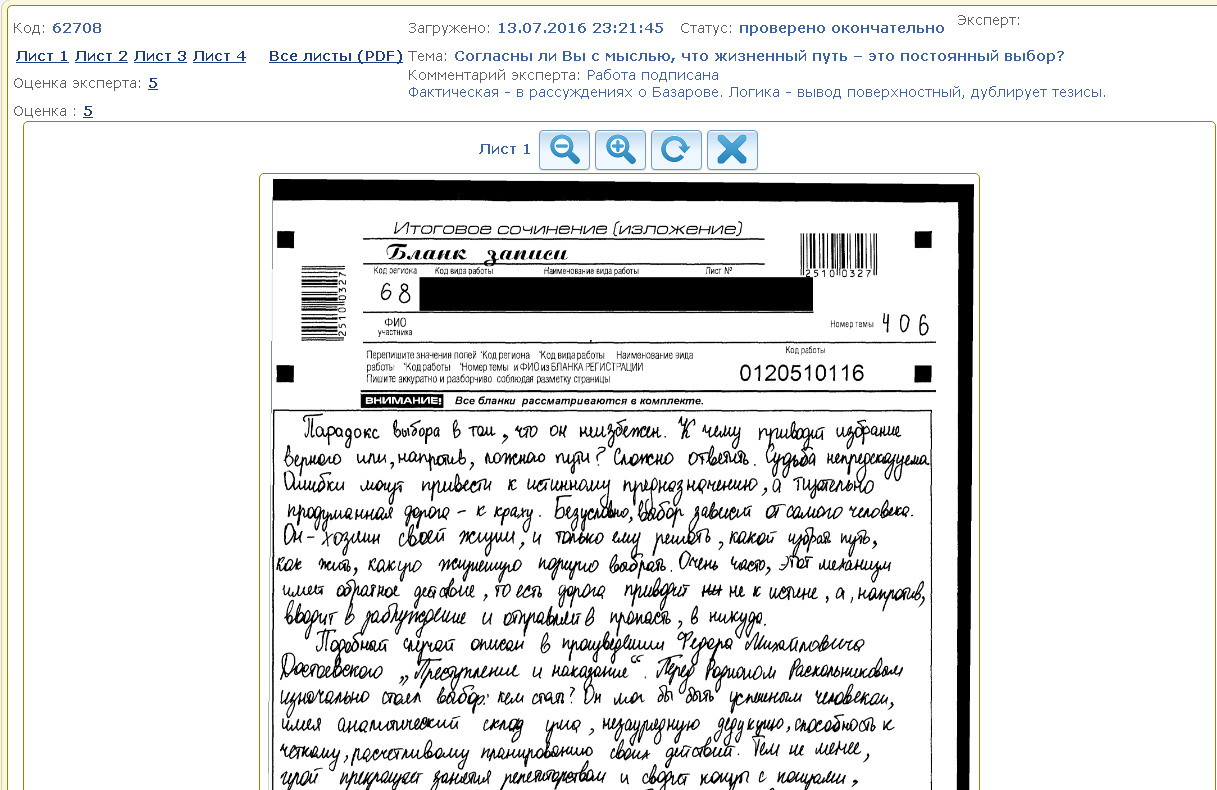 Код: 62708
Загружено: 13.07.2016 23:21:45 Статус: проверено окончательно Эксперт:
Лист 1 Лист 2 Лист 3 Лист 4 Все листы (PDF) Тема: Согласны ли Вы с мыслью, что жизненный путь – это постоянный выбор?
Комментарий эксперта: Работа подписана
Оценка эксперта: 5
Фактическая - в рассуждениях о Базарове. Логика - вывод поверхностный, дублирует тезисы.
Оценка : 5
Лист 1
Итоговое сочинение (изложение)
Бланк записи
Код региона Код вида работы Наименование вида работы Лист №
2510 0327
2510 0327
68
ФИО участника
Номер темы 406
Перепишите значения полей "Код региона "Код вида работы Наименование вида
работы "Код работы "Номер темы и ФИО из БЛАНКА РЕГИСТРАЦИИ
Пишите аккуратно и разборчиво соблюдая разметку страницы
Код работы
0120510116
ВНИМАНИЕ! Все бланки рассматриваются в комплекте.
Парадокс выбора в том, что он неизбежен. К чему приводит избрание
верного или, напротив, ложного пути? Сложно ответить. Судьба непредсказуема.
Ошибки могут привести к истинному предназначению, а тщательно
продуманная дорога – к краху. Безусловно, выбор зависит от самого человека.
Он – хозяин своей жизни, и только ему решать, какой избрать путь,
как жить, какую жизненную позицию выбрать. Очень часто, этот механизм
имеет обратное действие, то есть дорога приводит не к истине, а, напротив,
вводит в заблуждение и отправляет в пропасть, в никуда.
Подобный случай описан в произведении Федора Михайловича
Достоевского „Преступление и наказание“. Перед Родионом Раскольниковым
изначально стоял выбор: кем стать? Он мог бы быть успешным человеком,
имея аналитический склад ума, незаурядную дедукцию, способность к
четкому, расчетливому планированию своих действий. Тем не менее,
герой прекращает занятия репетиторством и сводит концы с концами,